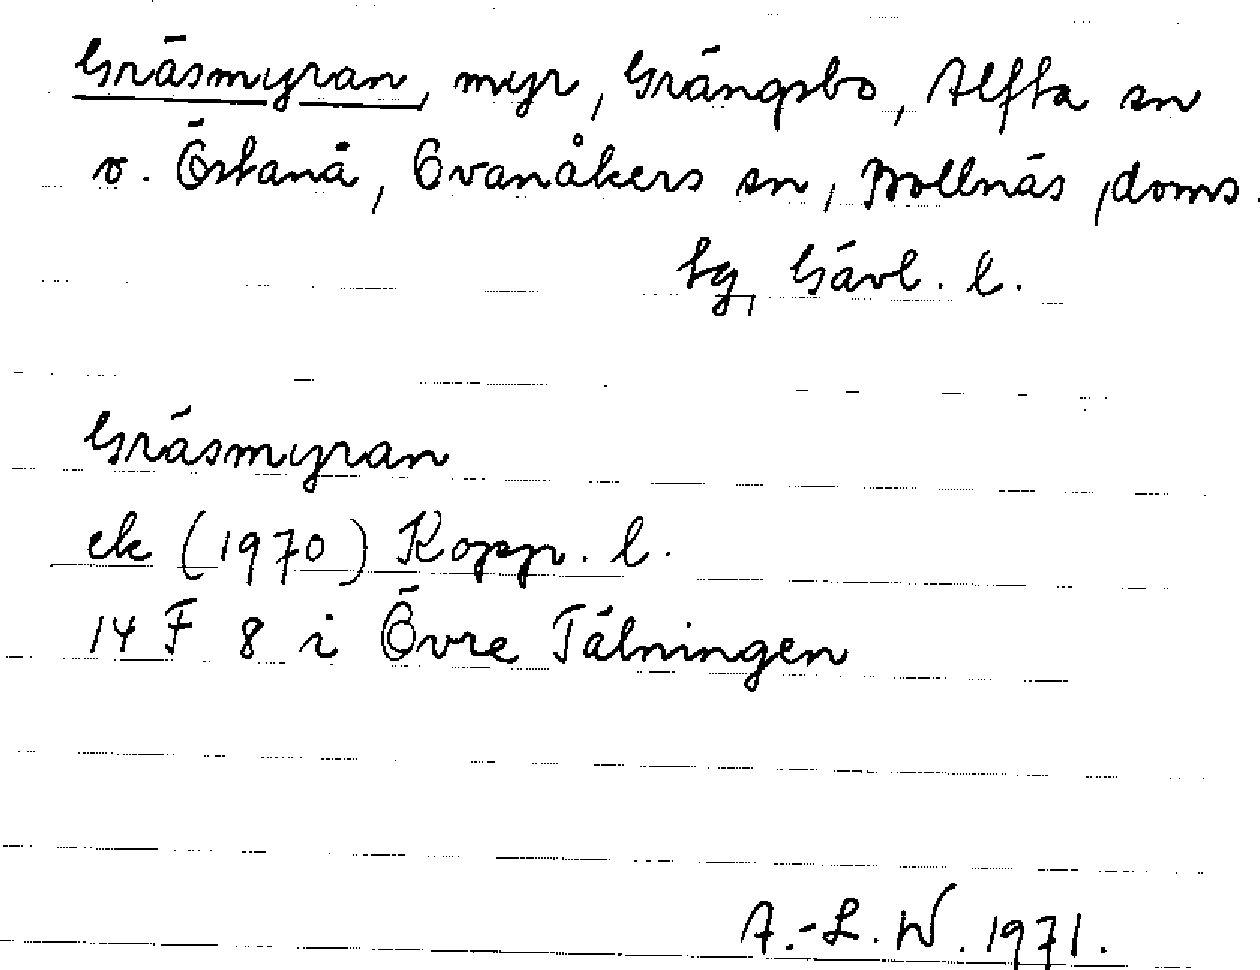 Gräsmyran, myr, Grängsbo, Alfta sn
o. Östanå, Ovanåkers sn, Bollnäs doms.
tg, Gävl. l.
Gräsmyran
ek (1970) Kopp. l.
14 F 8 i Övre Tälningen
A.-L. W. 1971.